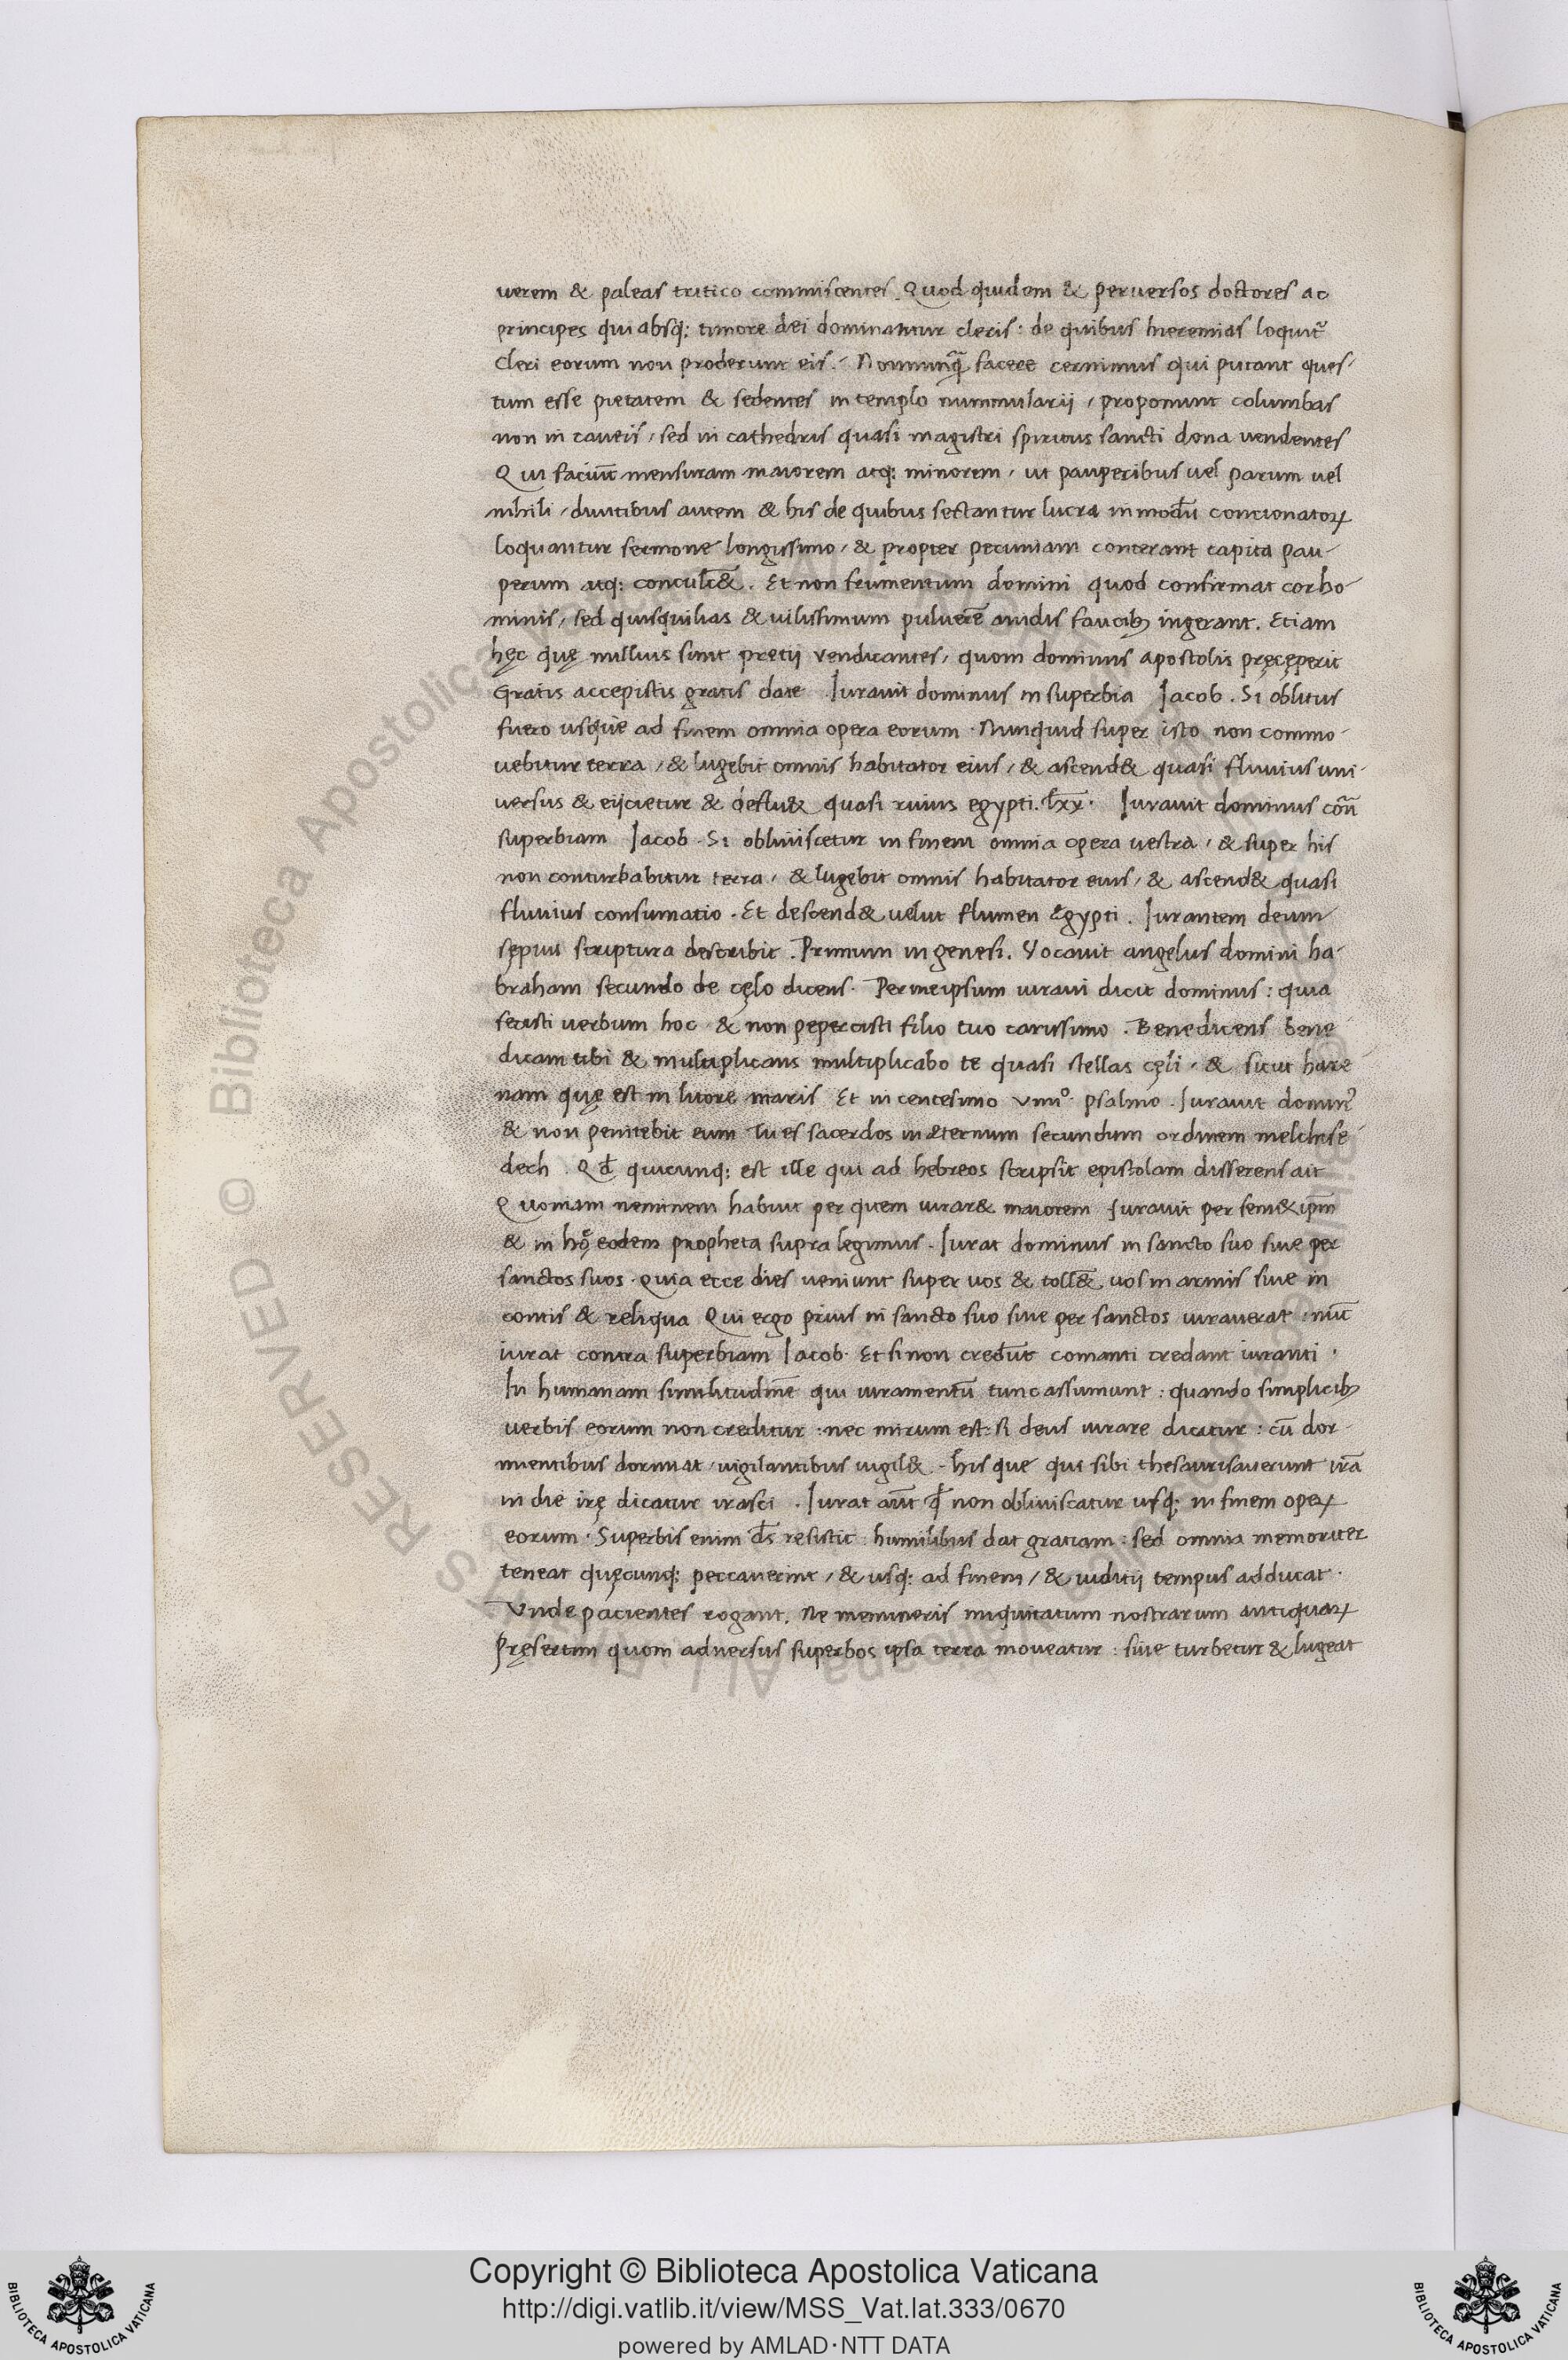 uerem & paleas tritico commiscentes. Quod quidem & peruersos doctores ac
principes qui absq; timore dei dominantur cleris: de quibus hieremias loquit᷑
Cleri eorum non proderunt eis. Nonnunq̃ facere cernimus qui putant ques-
tum esse pietatem & sedentes in templo nummularij, proponunt columbas
non in caueis, sed in cathedris quasi magistri spiritus sancti dona uendentes
Qui faciūt mensuram maiorem atq; minorem, ut pauperibus uel parum uel
nihili, diuitibus autem & his de quibus sectantur lucra in modū concionatoꝝ
loquantur sermone longissimo, & propter pecuniam conterant capita pau-
perum atq; conculc̄&. Et non frumentum domini quod confirmat cor ho-
minis, sed quisquilias & uilissimum puluerē auidis faucibꝫ ingerant. Etiam
hęc quę nullius sunt pretij vendicantes, quom dominus apostolis pręceperit
Gratis accepistis gratis date Iurauit dominus in superbia Iacob. Si oblitus
fuero usque ad finem omnia opera eorum. Nunquid super isto non commo-
uebitur terra, & lugebit omnis habitator eius, & ascend& quasi fluuius uni-
uersus & eijcietur & deflu& quasi riuus egypti. lxx. Iurauit dominus cōn̄
superbiam Iacob. Si obliuiscetur in finem omnia opera uestra, & super his
non conturbabitur terra, & lugebit omnis habitator eius, & ascend& quasi
fluuius consumatio. Et descend& uelut flumen Egypti. Iurantem deum
sępius scriptura describit. Primum in genesi. Vocauit angelus domini ha-
braham secundo de cęlo dicens. Per me ipsum iuraui dicit dominus: quia
fecisti uerbum hoc & non pepercisti filio tuo carissimo. Benedicens bene-
dicam tibi & multiplicans multiplicabo te quasi stellas cęli, & sicut hare-
nam quę est in litore maris Et in centesimo viiiiº psalmo. Iurauit domin᷒
& non penitebit eum Tu es sacerdos in æternum secundum ordinem melchise-
dech. Qđ quicunq; est ille qui ad hebreos scripsit epistolam disserens ait
Quoniam neminem habuit per quem iurar& maiorem Iurauit per sem&ip̄m
& in eodem propheta supra legimus. Iurat dominus in sancto suo siue per
sanctos suos. Quia ecce dies ueniunt super uos & toll& uos in armis siue in
contis & reliqua Qui ergo prius in sancto suo siue per sanctos iurauerat: nūc
iurat contra superbiam Iacob. Et si non credūt comanti credant iuranti.
In humanam similitudinē qui iuramentū tunc assumunt: quando simplicibꝫ
uerbis eorum non creditur: nec mirum est: si deus iurare dicatur: cū dor-
mientibus dormiat, uigilantibus uigil&. hisque qui sibi thesaurisauerunt irā
in die irę dicatur irasci. Iurat aūt ꝙ non obliuiscatur usq; in finem opeꝝ
eorum. Superbis enim ds̄ resistit: humilibus dat gratiam: sed omnia memoriter
teneat quęcunq; peccauerint, & usq; ad finem, & iuditij tempus adducat.
Vnde pacientes rogant. Ne memineris iniquitatum nostrarum antiquaꝝ
Pręsertim quom aduersus superbos ipsa terra moueatur: siue turbetur & lugeat
© Biblioteca Apostolica Vaticana ALL RIGHTS RESERVED
Copyright © Biblioteca Apostolica Vaticana
http://digi.vatlib.it/view/MSS_Vat.lat.333/0670
powered by AMLAD·NTT DATA
BIBLIOTECA APOSTOLICA VATICANA
BIBLIOTECA APOSTOLICA VATICANA